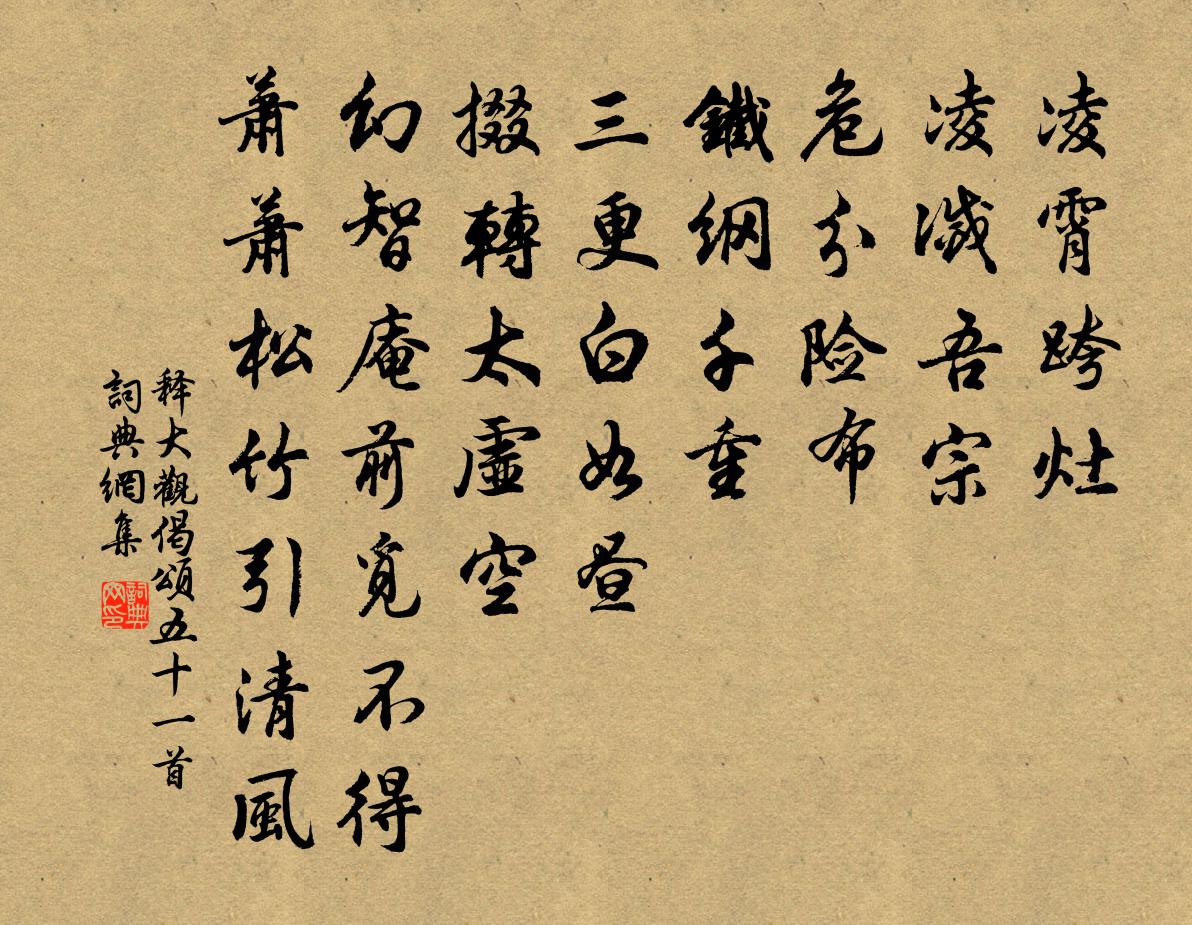 凌霄跨灶
凌滅吾宗
危分险布
鐵網千重
三更白如昼
掇轉太虛空
幻智庵前覓不得
萧萧松竹引清風
释大觀偈頌五十一首
詞典網集
詞典网印